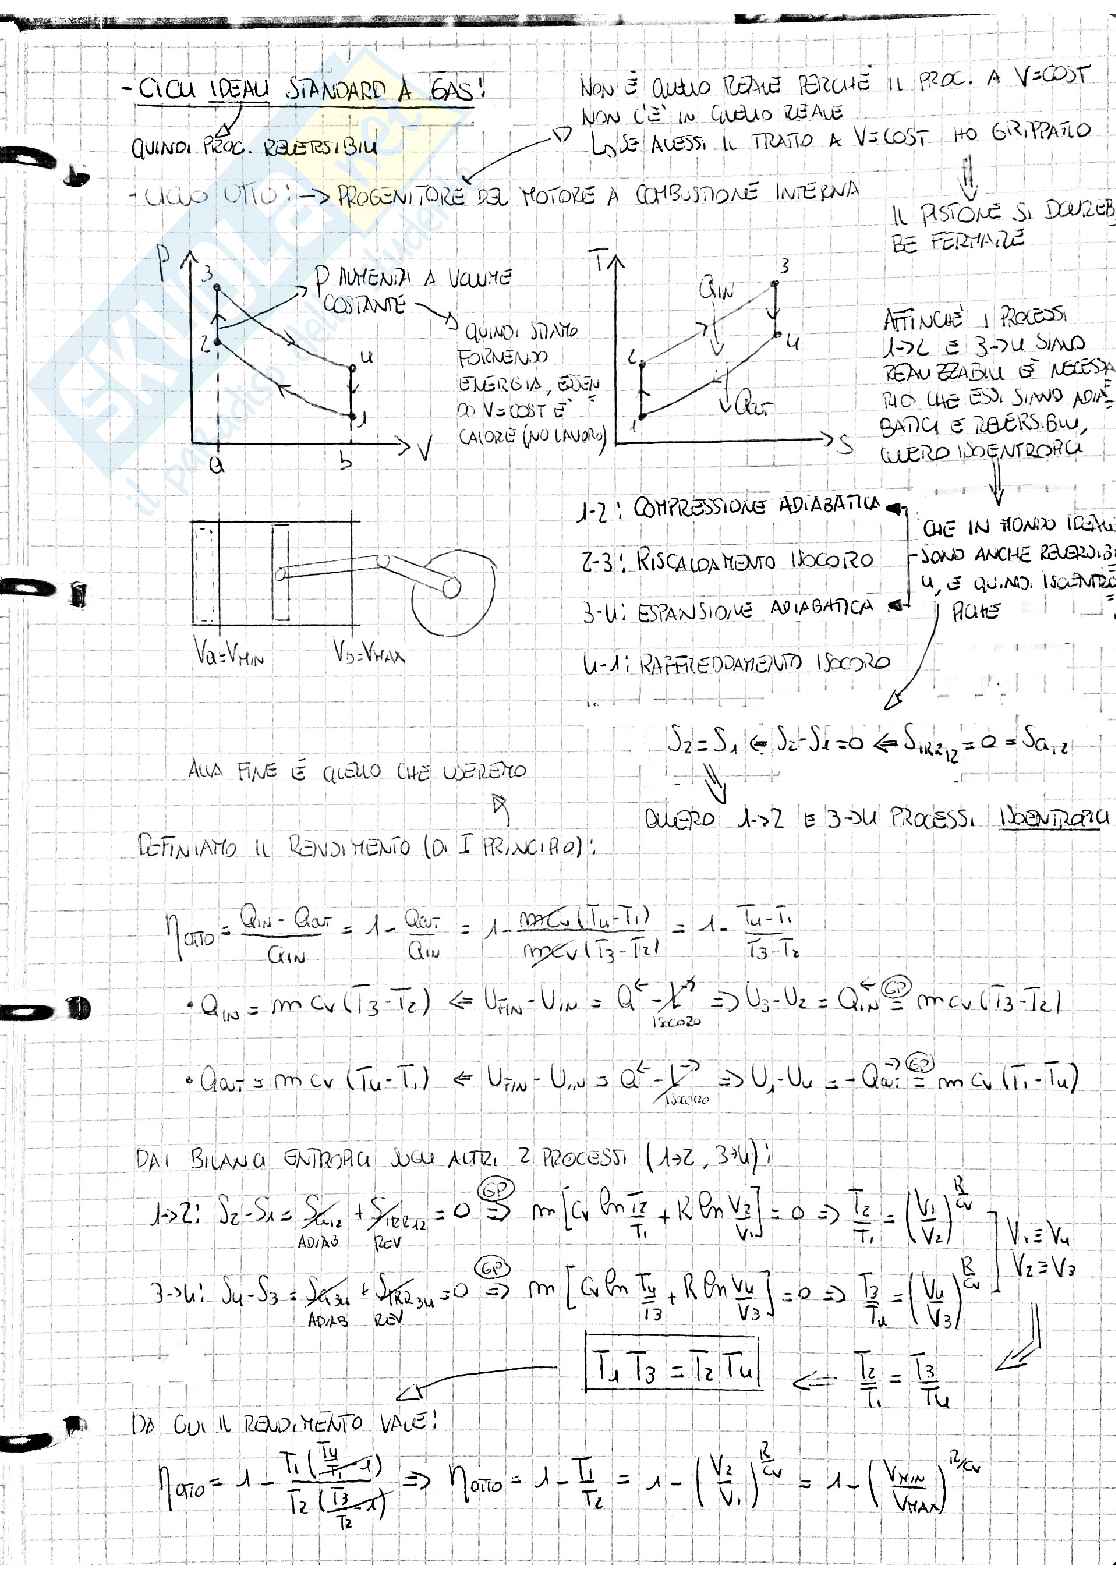 - CICLI IDEALI STANDARD A GAS:
QUINDI PROC. REVERSIBILI
NON È QUELLO REALE PERCHÈ IL PROC. A V=COST
NON C'È IN QUELLO REALE
SE AVESSI IL TRATTO A V=COST HO GRIPPATO
IL PISTONE SI DOVREB
BE FERMARE
- CICLO OTTO: -> PROGENITORE DEL MOTORE A COMBUSTIONE INTERNA
P
3
2
4
1
a
b
V
P AUMENTA A VOLUME
COSTANTE
QUINDI STIAMO
FORNENDO
ENERGIA, ESSEN
DO V=COST È
CALORE (NO LAVORO)
T
QIN
3
2
4
1
QOUT
S
AFFINCHÈ I PROCESSI
1->2 E 3->4 SIANO
REALIZZABILI È NECESSA
RIO CHE ESSI SIANO ADIA
BATICI E REVERSIBILI,
OVVERO ISOENTROPICI
1-2: COMPRESSIONE ADIABATICA
2-3: RISCALDAMENTO ISOCORO
3-4: ESPANSIONE ADIABATICA
4-1: RAFFREDDAMENTO ISOCORO
CHE IN MONDO IDEALE
SONO ANCHE REVERSIBI
LI, E QUINDI ISOENTRO
PICHE
Va=VMIN
Vb=VMAX
S2=S1 <= S2-S1=0 <= SIRR12=0=SQ12
OVVERO 1->2 E 3->4 PROCESSI ISOENTROPICI
ALLA FINE È QUELLO CHE USEREMO
DEFINIAMO IL RENDIMENTO (DI I PRINCIPIO):
ηOTTO = (QIN - QOUT)/QIN = 1 - QOUT/QIN = 1 - mcv(T4-T1)/mcv(T3-T2) = 1 - (T4-T1)/(T3-T2)
• QIN = m cv (T3-T2) <= UFIN - UIN = Q← - L→ => U3-U2 = QIN← =(GP) m cv (T3-T2)
ISOCORO
• QOUT = m cv (T4-T1) <= UFIN - UIN = Q← - L→ => U1-U4 = -QOUT→ =(GP) m cv (T1-T4)
ISOCORO
DAI BILANCI ENTROPICI SUGLI ALTRI 2 PROCESSI (1->2, 3->4):
1->2: S2-S1 = SQ12 + SIRR12 = 0 =>(GP) m[cv ln T2/T1 + R ln V2/V1] = 0 => T2/T1 = (V1/V2)^R/cv
ADIAB REV
V1≡V4
V2≡V3
3->4: S4-S3 = SQ34 + SIRR34 = 0 =>(GP) m[cv ln T4/T3 + R ln V4/V3] = 0 => T3/T4 = (V4/V3)^R/cv
ADIAB REV
T1 T3 = T2 T4 <= T2/T1 = T3/T4
DA CUI IL RENDIMENTO VALE:
ηOTTO = 1 - T1(T4/T1 - 1)/T2(T3/T2 - 1) => ηOTTO = 1 - T1/T2 = 1 - (V2/V1)^R/cv = 1 - (VMIN/VMAX)^R/cv